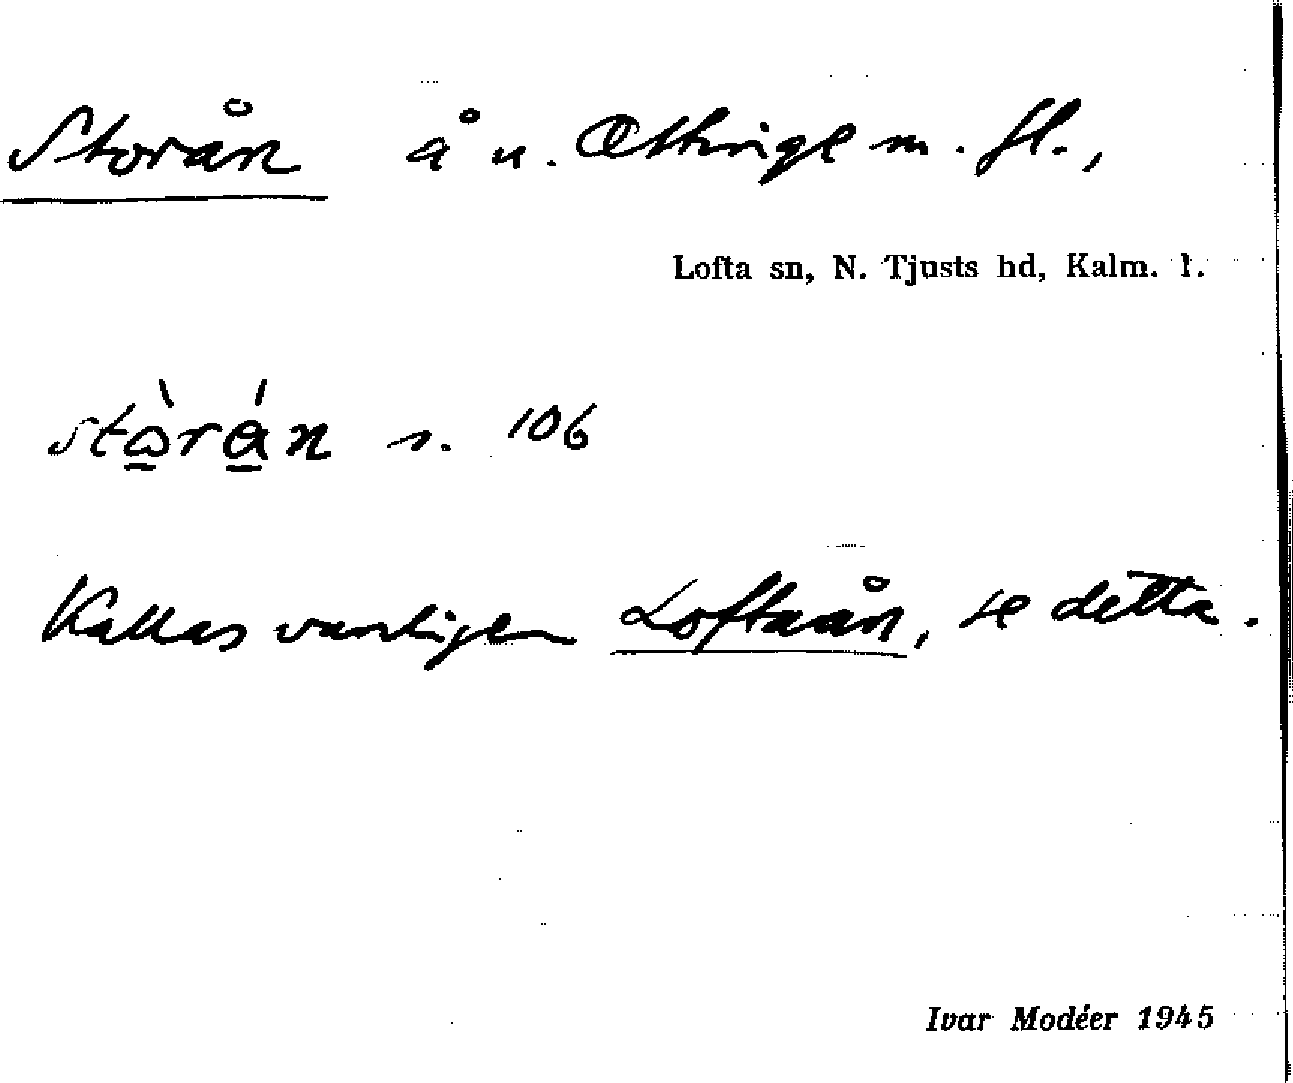 Storån å u. Ottinge m. fl.,
Lofta sn, N. Tjusts hd, Kalm. l.
s. 106
Kallas vanligen Loftaån, se detta.
Ivar Modéer 1945